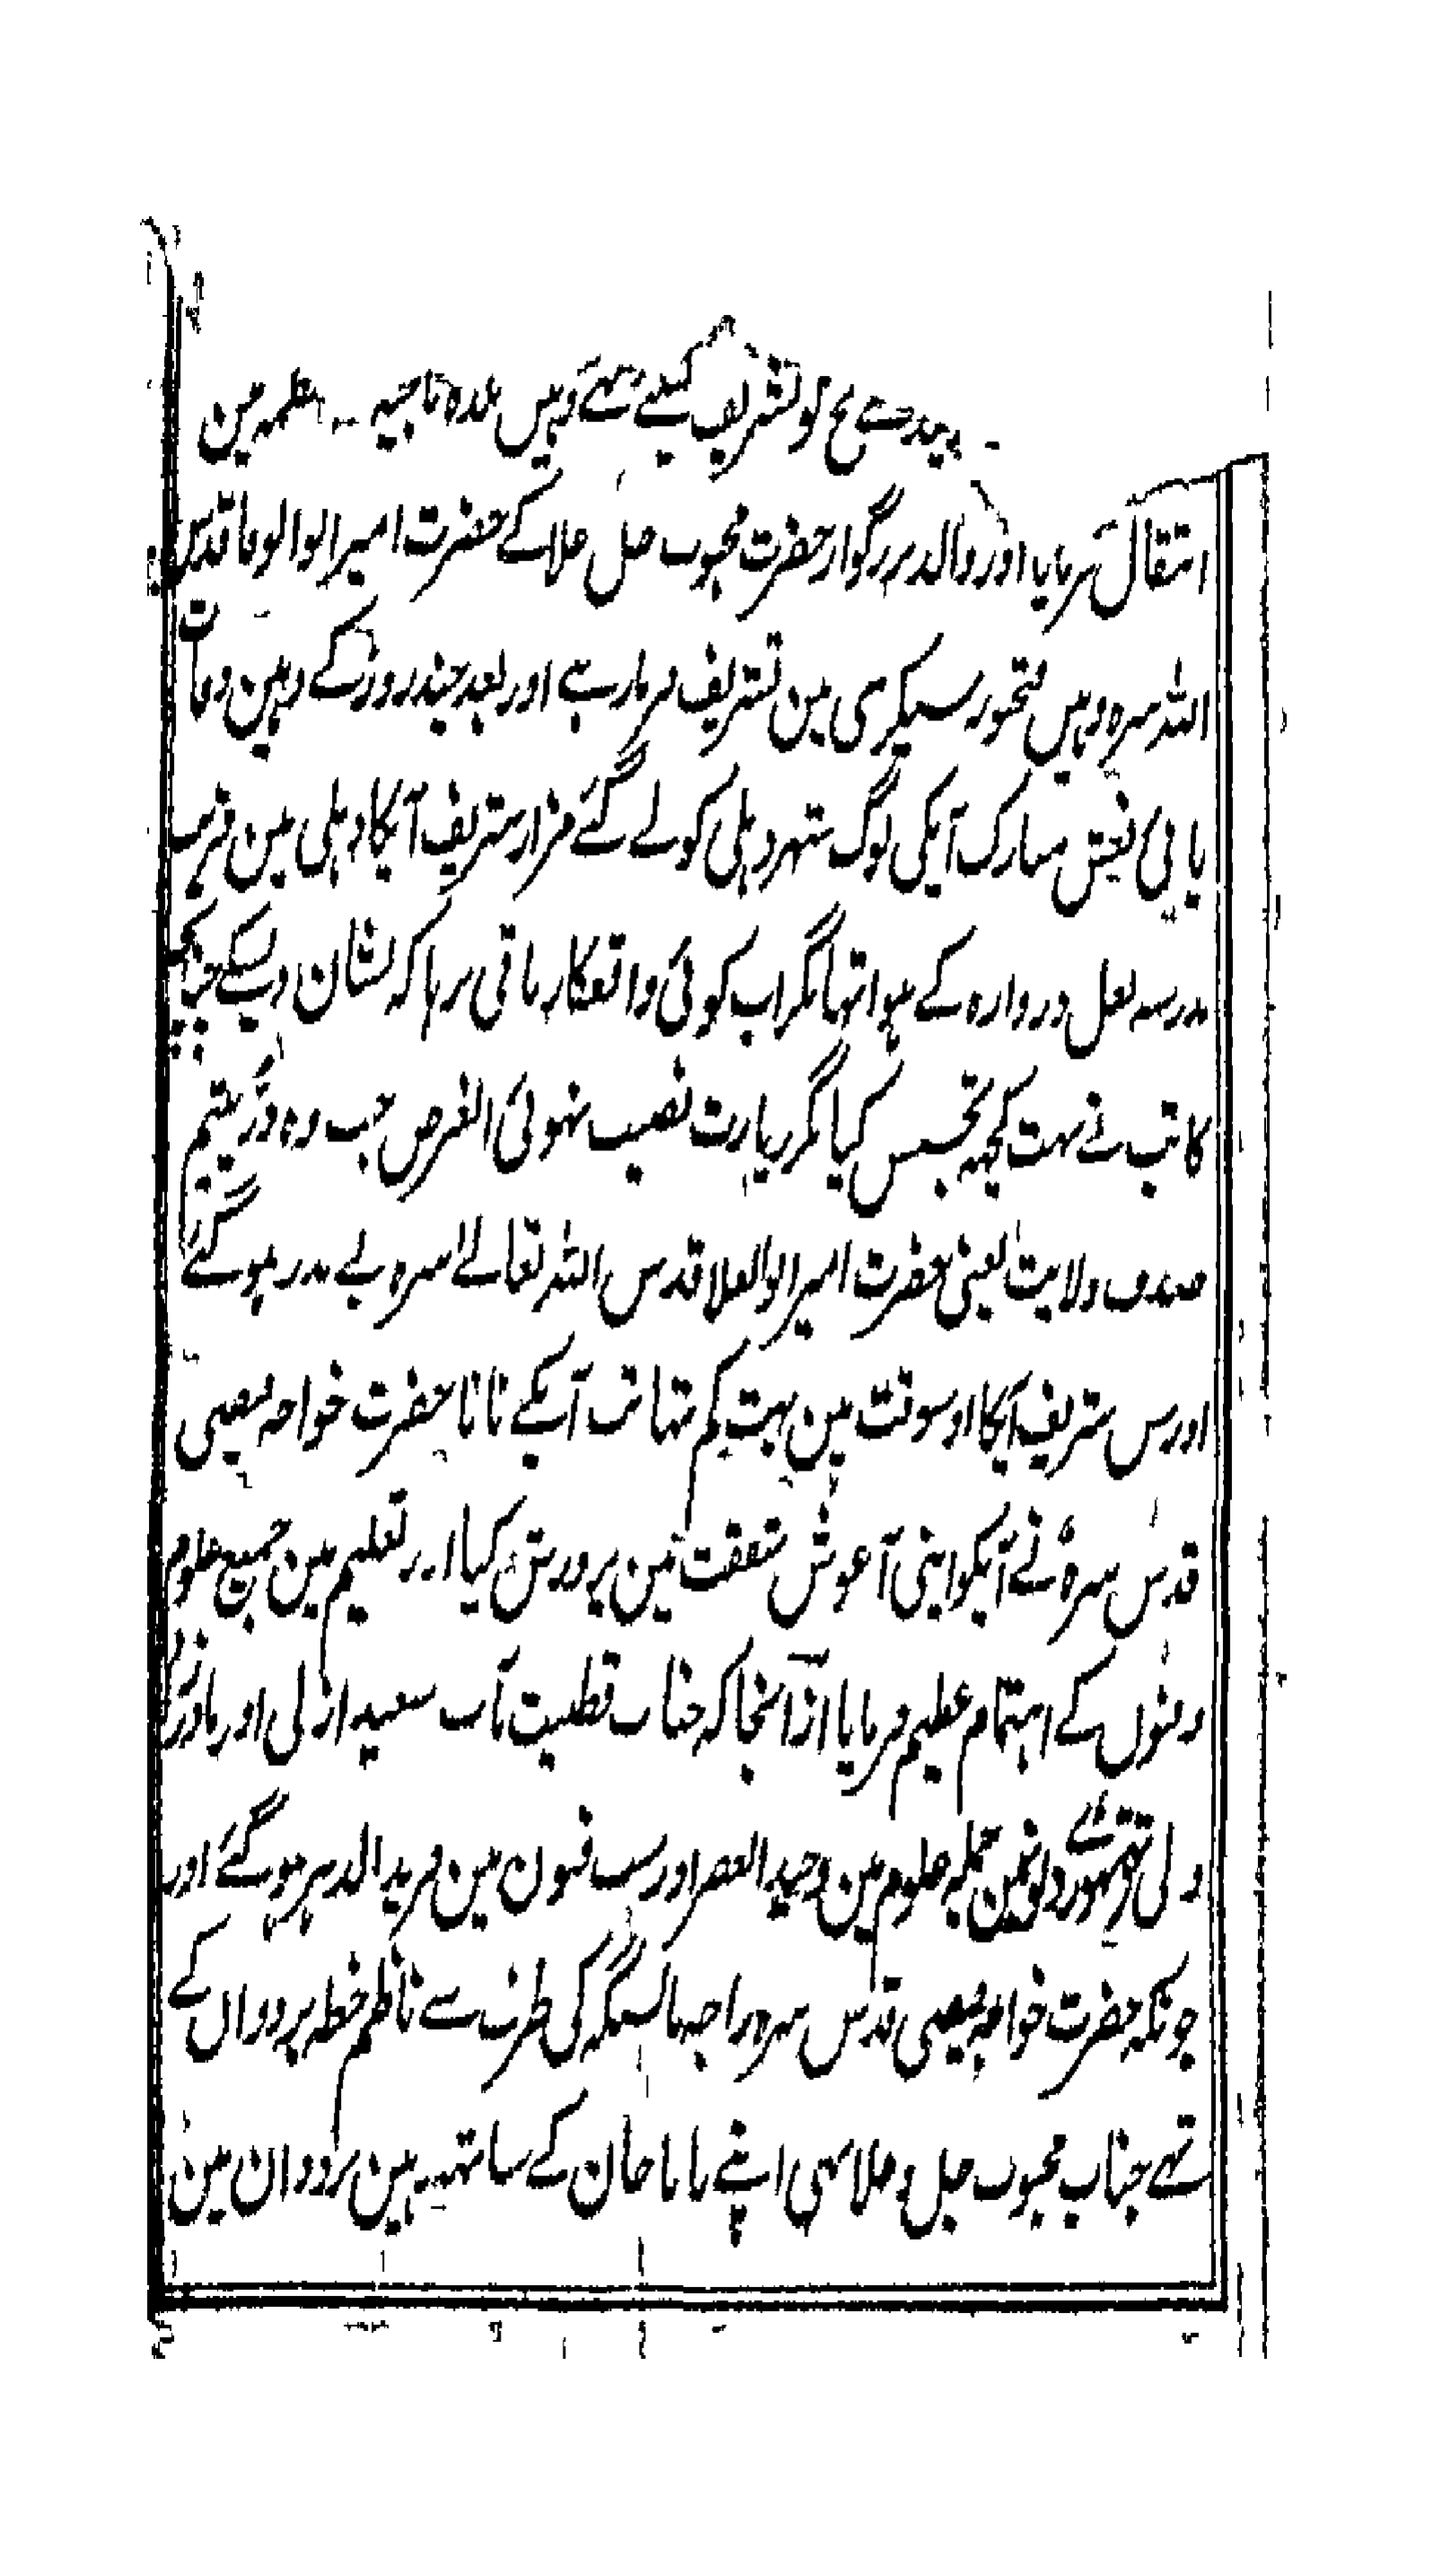 حج کو تشریف لیگئے تہے وہیں بلدہ ناجیہ معظمہ مین
انتقال فرمایا اور والد بزرگوار حضرت محبوب جل علا کے حضرت امیر ابوالوفا قدس
اللہ سرہ وہیں فتحپور سیکری مین تشریف فرما رہے اور بعد چند روز کے وہین وفات
پائی نعش مبارک آپکی لوگ شہر دہلی کو لے گئے مزار شریف آپکا دہلی مین قریب
مدرسہ لعل دروازہ کے ہوا تہا مگر اب کوئی واقفکار باقی نرہا کہ نشان دیسکے چنانچہ
کاتب نے بہت کچہہ تجسس کیا مگر زیارت نصیب نہوئی الغرض جب وہ دُرِّ یتیم
صدف ولایت یعنی حضرت امیر ابوالعلا قدس اللہ تعالےٰ سرہ بے پدر ہوگئے
اور سن شریف آپکا اوسوقت مین بہت کم تہا تب آپکے نانا حضرت خواجہ فیضی
قدس سرہٗ نے آپکو اپنی آغوش شفقت مین پرورش کیا اور تعلیم مین جمیع علوم
وفنوں کے اہتمام عظیم فرمایا از آنجا کہ جناب قطبیت مآب سعید ازلی اور مادرزاد
ولی تہے تہوڑے دنونمین جملہ علوم مین وحید العصر اور سب فنون مین فرید الدہر ہوگئے اور
چونکہ حضرت خواجہ فیضی قدس سرہ راجہ مانسنگہ کی طرف سے ناظم خطہ بردوان کے
تہے جناب محبوب جل وعلا بہی اپنے نانا جان کے ساتہہ ہین بردوان مین